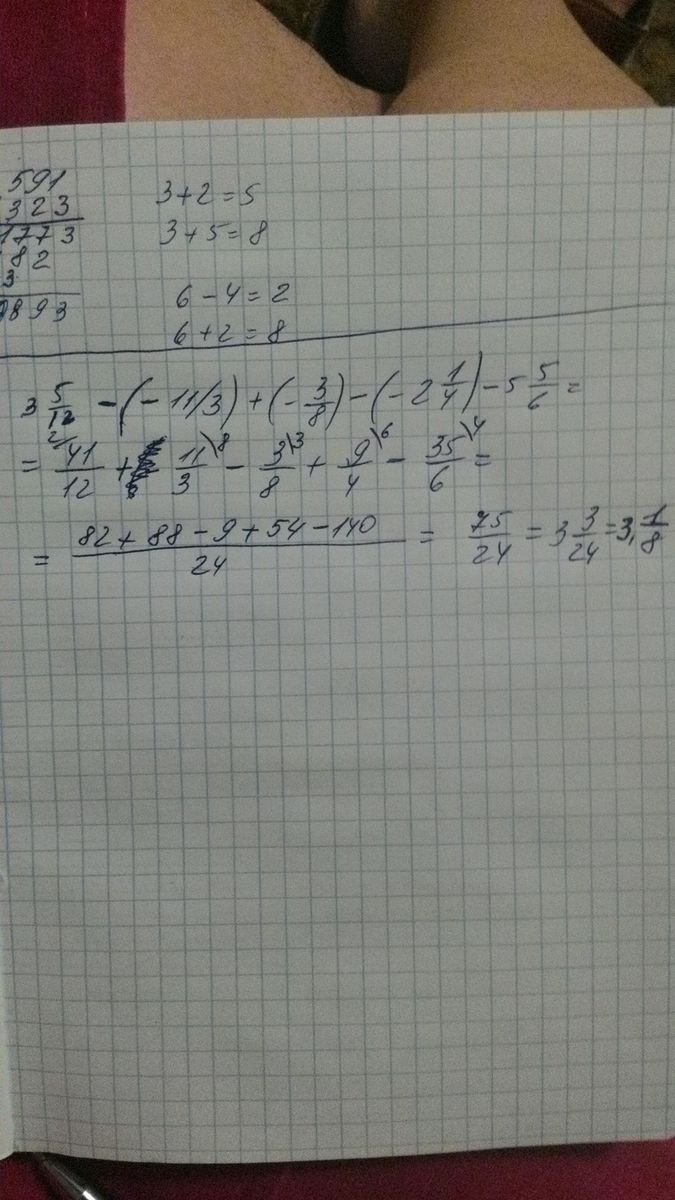 591
323
1773
82
3
893
3+2=5
3+5=8
6-4=2
6+2=8
3 5/12 - (-11/3) + (-3/8) - (-2 1/4) - 5 5/6 =
= 2/ 41/12 + 11/3 \8 - 3/8 \3 + 9/4 \6 - 35/6 \4 =
= (82 + 88 - 9 + 54 - 140)/24 = 75/24 = 3 3/24 = 3, 1/8